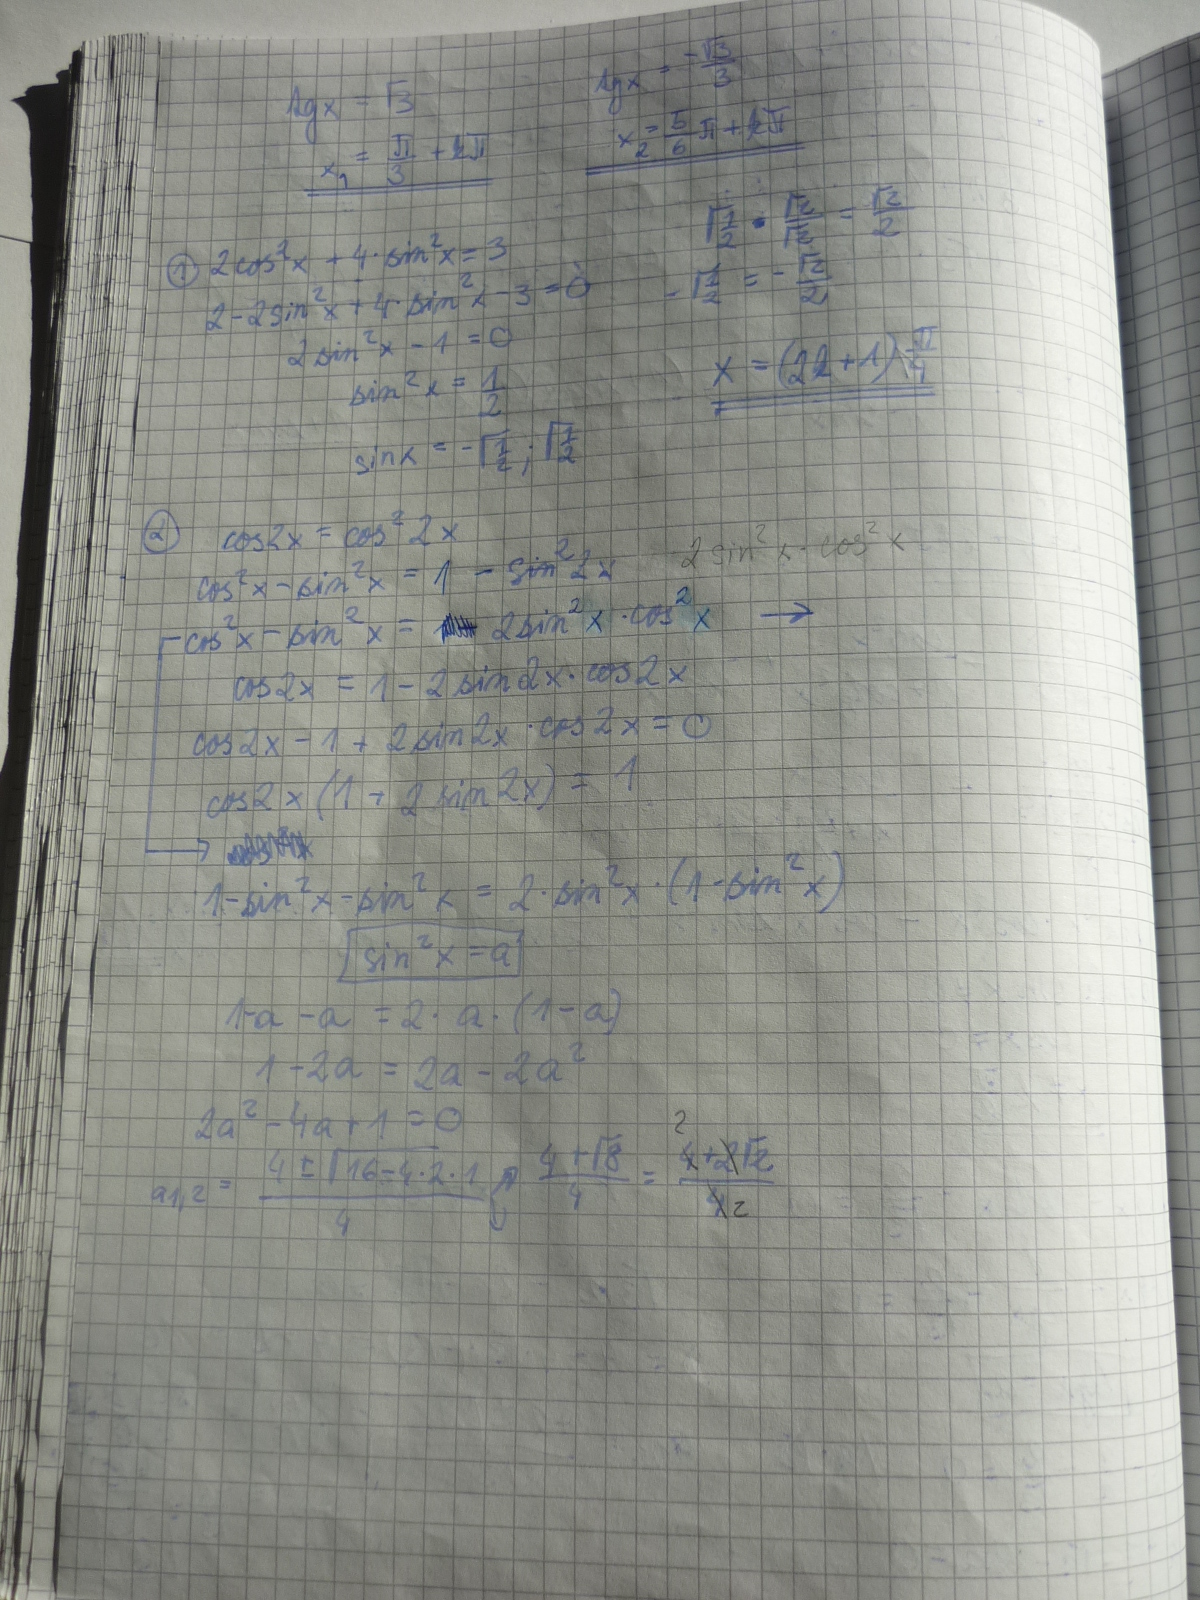 tgx = √3
tgx = -√3/3
x₁ = π/3 + kπ
x₂ = 5/6 π + kπ
√1/2 · √2/√2 = √2/2
-√1/2 = -√2/2
x = (2k+1) π/4
① 2cos²x + 4·sin²x = 3
2-2sin²x + 4·sin²x - 3 = 0
2sin²x - 1 = 0
sin²x = 1/2
sinx = -√1/2 ; √1/2
② cos2x = cos²2x
cos²x - sin²x = 1 - sin²2x
2sin²x·cos²x
cos²x - sin²x = 2sin²x·cos²x →
cos2x = 1 - 2sin2x·cos2x
cos2x - 1 + 2sin2x·cos2x = 0
cos2x (1 + 2sin2x) = 1
1-sin²x-sin²x = 2·sin²x·(1-sin²x)
sin²x = a
1-a-a = 2·a·(1-a)
1-2a = 2a-2a²
2a²-4a+1 = 0
a1,2 = 4±√16-4·2·1/4
4+√8/4 = 4+2√2/4
2
2